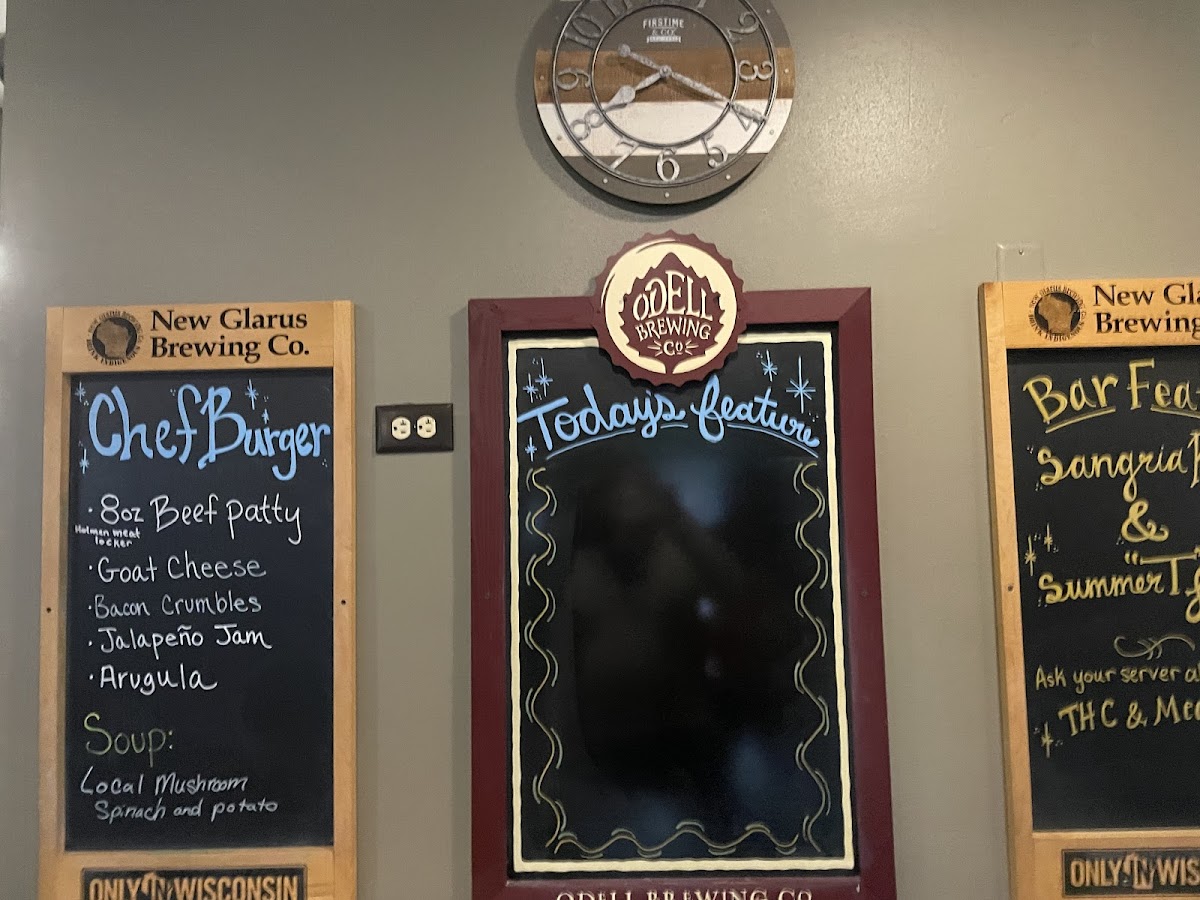 FIRSTIME
& CO
2
3
4
5
6
7
8
9
10
ODELL
BREWING
CO
New Glarus
Brewing Co.
Chef Burger
· 8oz Beef patty
Holmen meat
locker
· Goat Cheese
· Bacon Crumbles
· Jalapeño Jam
· Arugula
Soup:
Local Mushroom
Spinach and potato
ONLY IN WISCONSIN
Today's feature
ODELL BREWING CO
New Gla
Brewing
Bar Fea
Sangria
&
"
Summer
Ask your server a
THC & Me
ONLY IN WIS